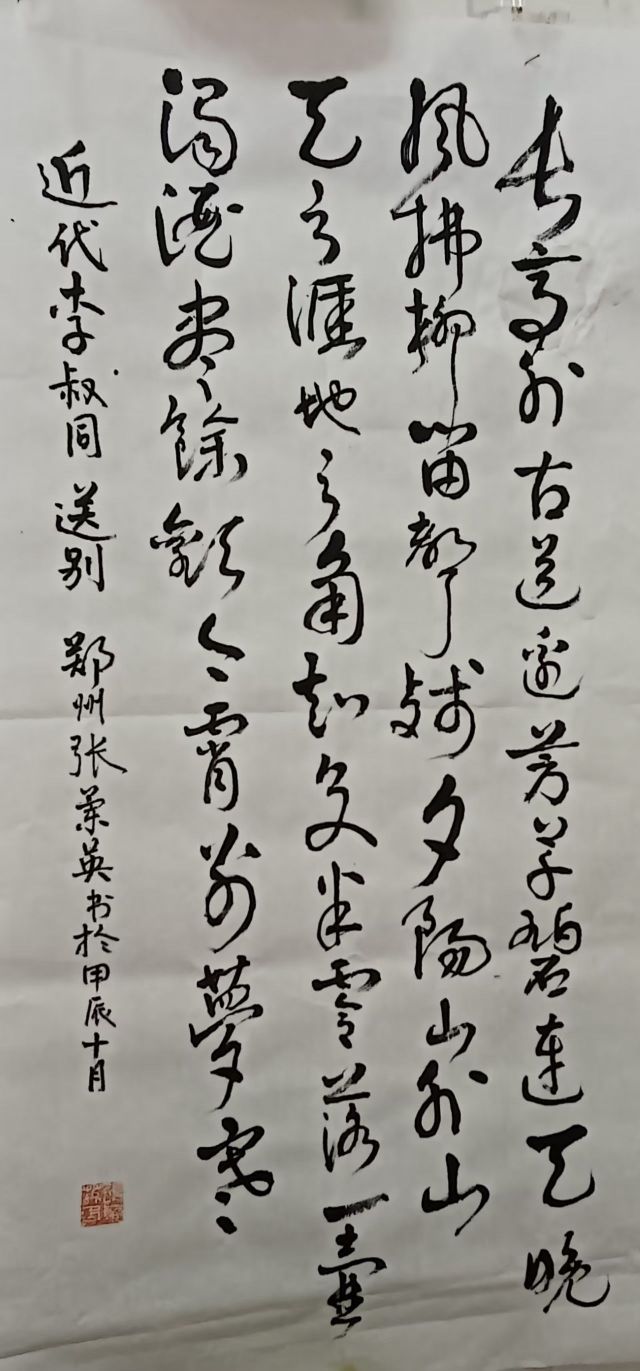 长亭外古道边芳草碧连天晚
风拂柳笛声残夕阳山外山
天之涯地之角知交半零落一壶
浊酒尽馀欢今宵别梦寒
近代李叔同 送别 郑州张荣英书於甲辰十月